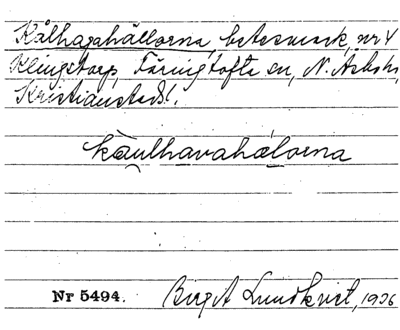 Kålhagahällorna, betesmark, nr 4
Klingstorp, Färingtofta sn, N. Åsbohd,
Kristianstads l.
kau̯lhavahälorna
Nr 5494.
Birgit Lundkvist, 1936